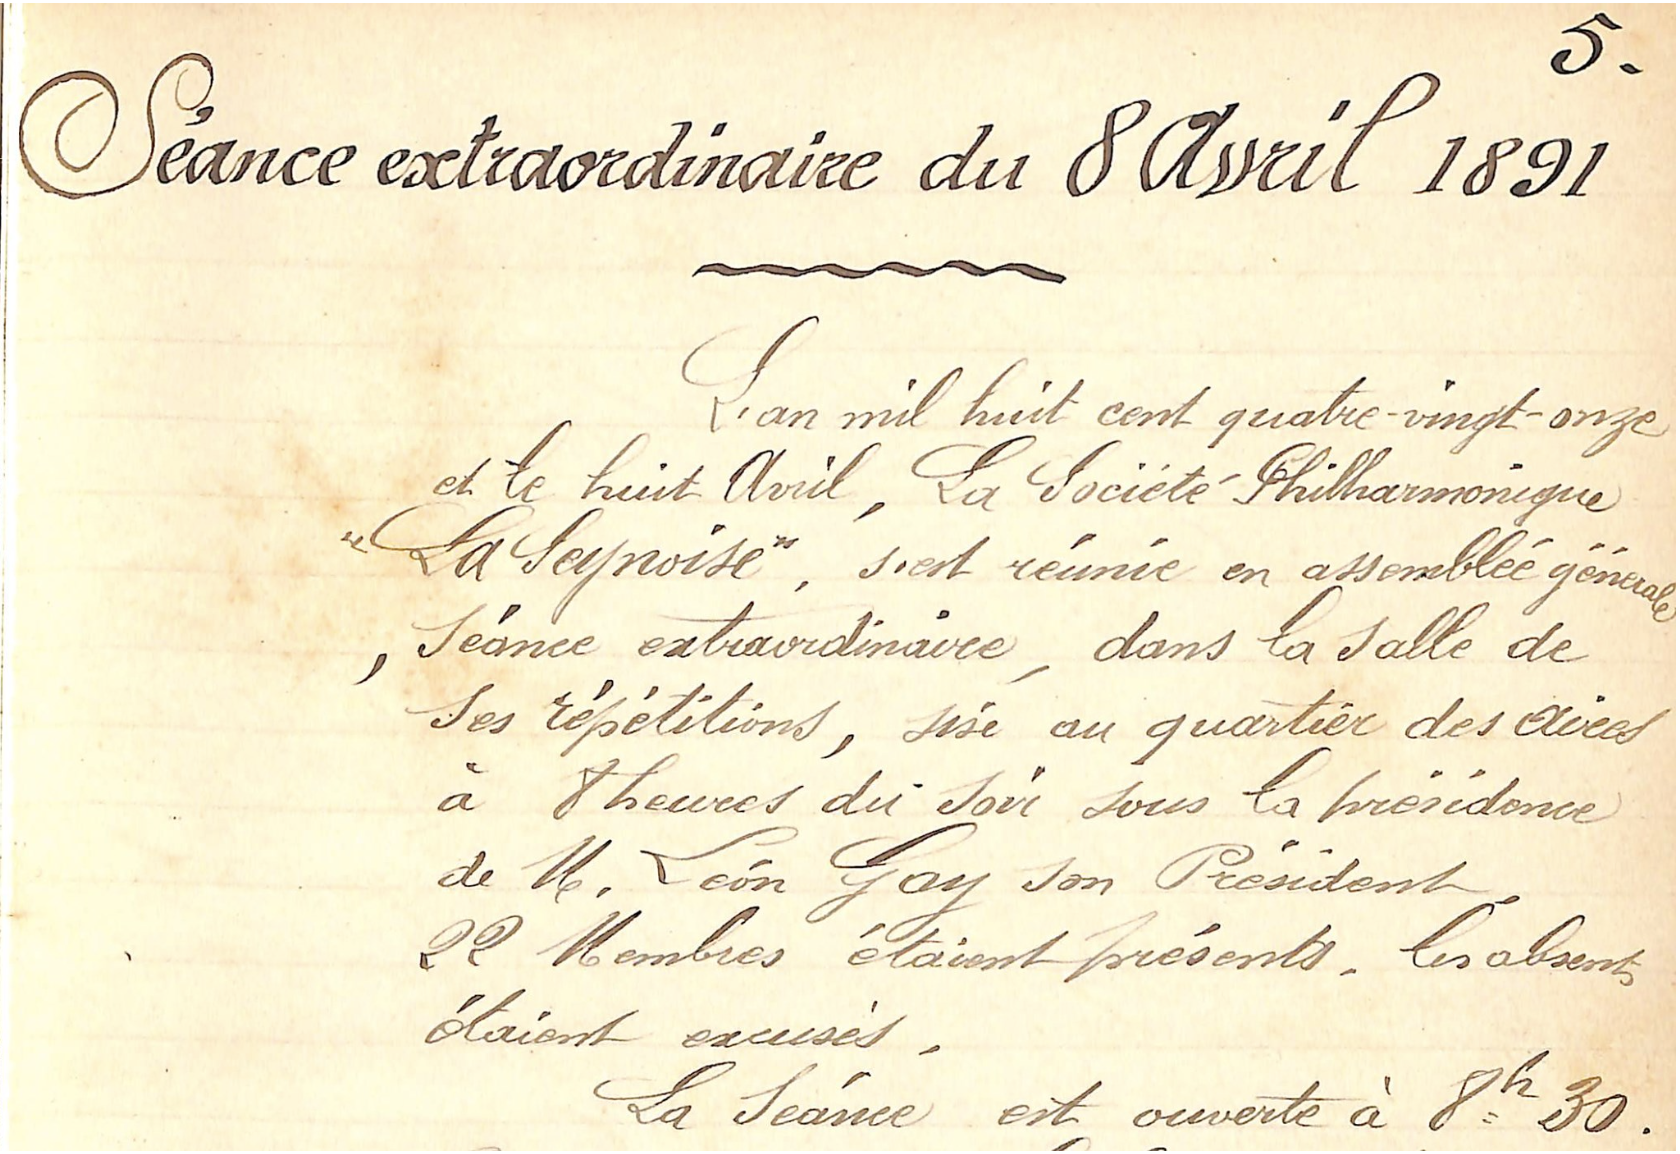 5.
Séance extraordinaire du 8 Avril 1891
L'an mil huit cent quatre-vingt-onze
et le huit Avril, La Société Philharmonique
"La Seynoise", s'est réunie en assemblée générale
, Séance extraordinaire, dans la salle de
ses répétitions, sise au quartier des Aires
à 8 heures du soir sous la présidence
de M. Léon Gay son Président.
22 Membres étaient présents. les absents
étaient excusés.
La Séance est ouverte à 8h 30.